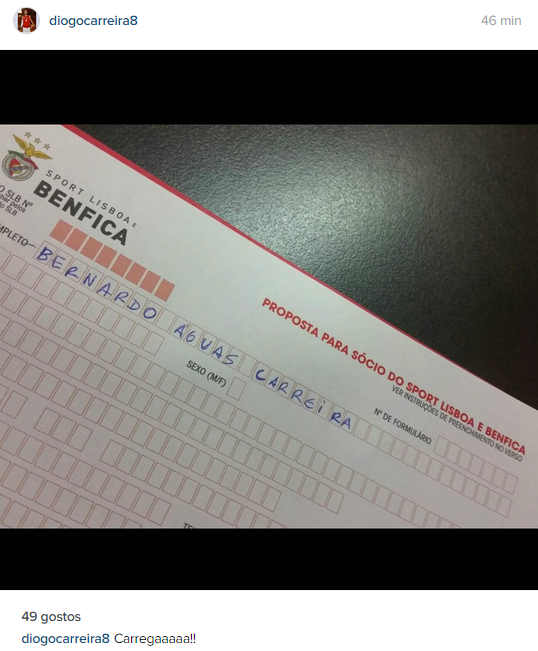 diogocarreira8
46 min
SPORT LISBOA E
BENFICA
SLB Nº
BERNARDO AGUAS CARREIRA
SEXO (M/F)
PROPOSTA PARA SÓCIO DO SPORT LISBOA E BENFICA
VER INSTRUÇÕES DE PREENCHIMENTO NO VERSO
Nº DE FORMULÁRIO
49 gostos
diogocarreira8 Carregaaaaa!!